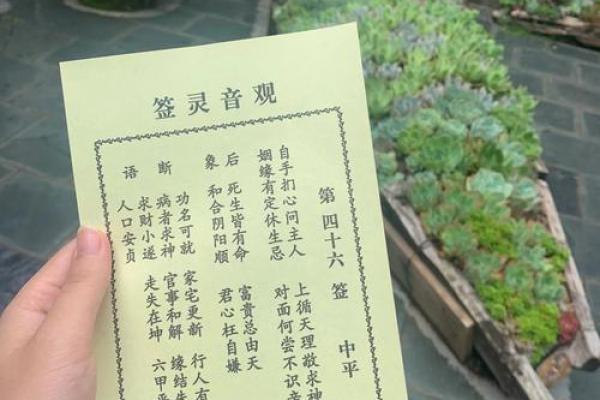 观音灵签
第四十六签 中平
自手扪心问主人 上循天理敬求神
姻缘有定休生忌 对面何尝不识
后象
死生皆有命 富贵总由天
和合阴阳顺 君心枉自嫌
断语
功名可就 家宅更新 行人有
病者求神 官事和解 缘结
求财小遂 走失在坤 六甲
人口安贞